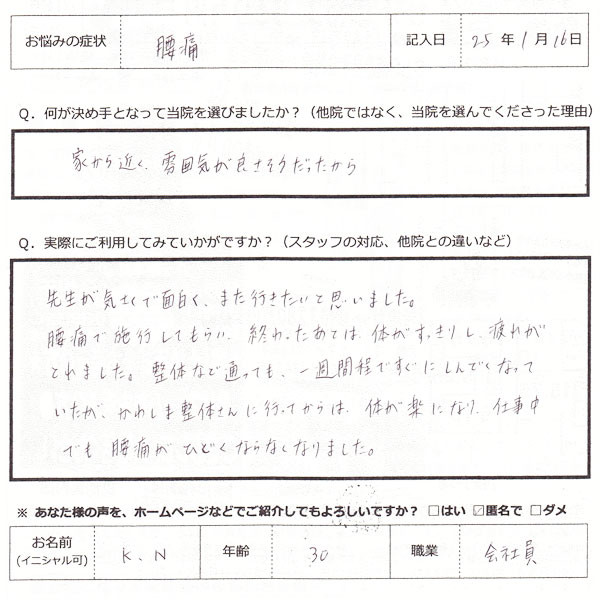 お悩みの症状 腰痛 記入日 25年1月16日
Q．何が決め手となって当院を選びましたか？（他院ではなく、当院を選んでくださった理由）
家から近く、雰囲気が良さそうだったから
Q．実際にご利用してみていかがですか？（スタッフの対応、他院との違いなど）
先生が気さくで面白く、また行きたいと思いました。
腰痛で施行してもらい、終わったあとは、体がすっきりし、疲れが
とれました。整体など通っても、一週間程ですぐにしんでくなって
いたが、かわしま整体さんに行ってからは、体が楽になり、仕事中
でも腰痛がひどくならなくなりました。
※ あなた様の声を、ホームページなどでご紹介してもよろしいですか？ □はい ☑匿名で □ダメ
お名前 K.N 年齢 30 職業 会社員
(イニシャル可)